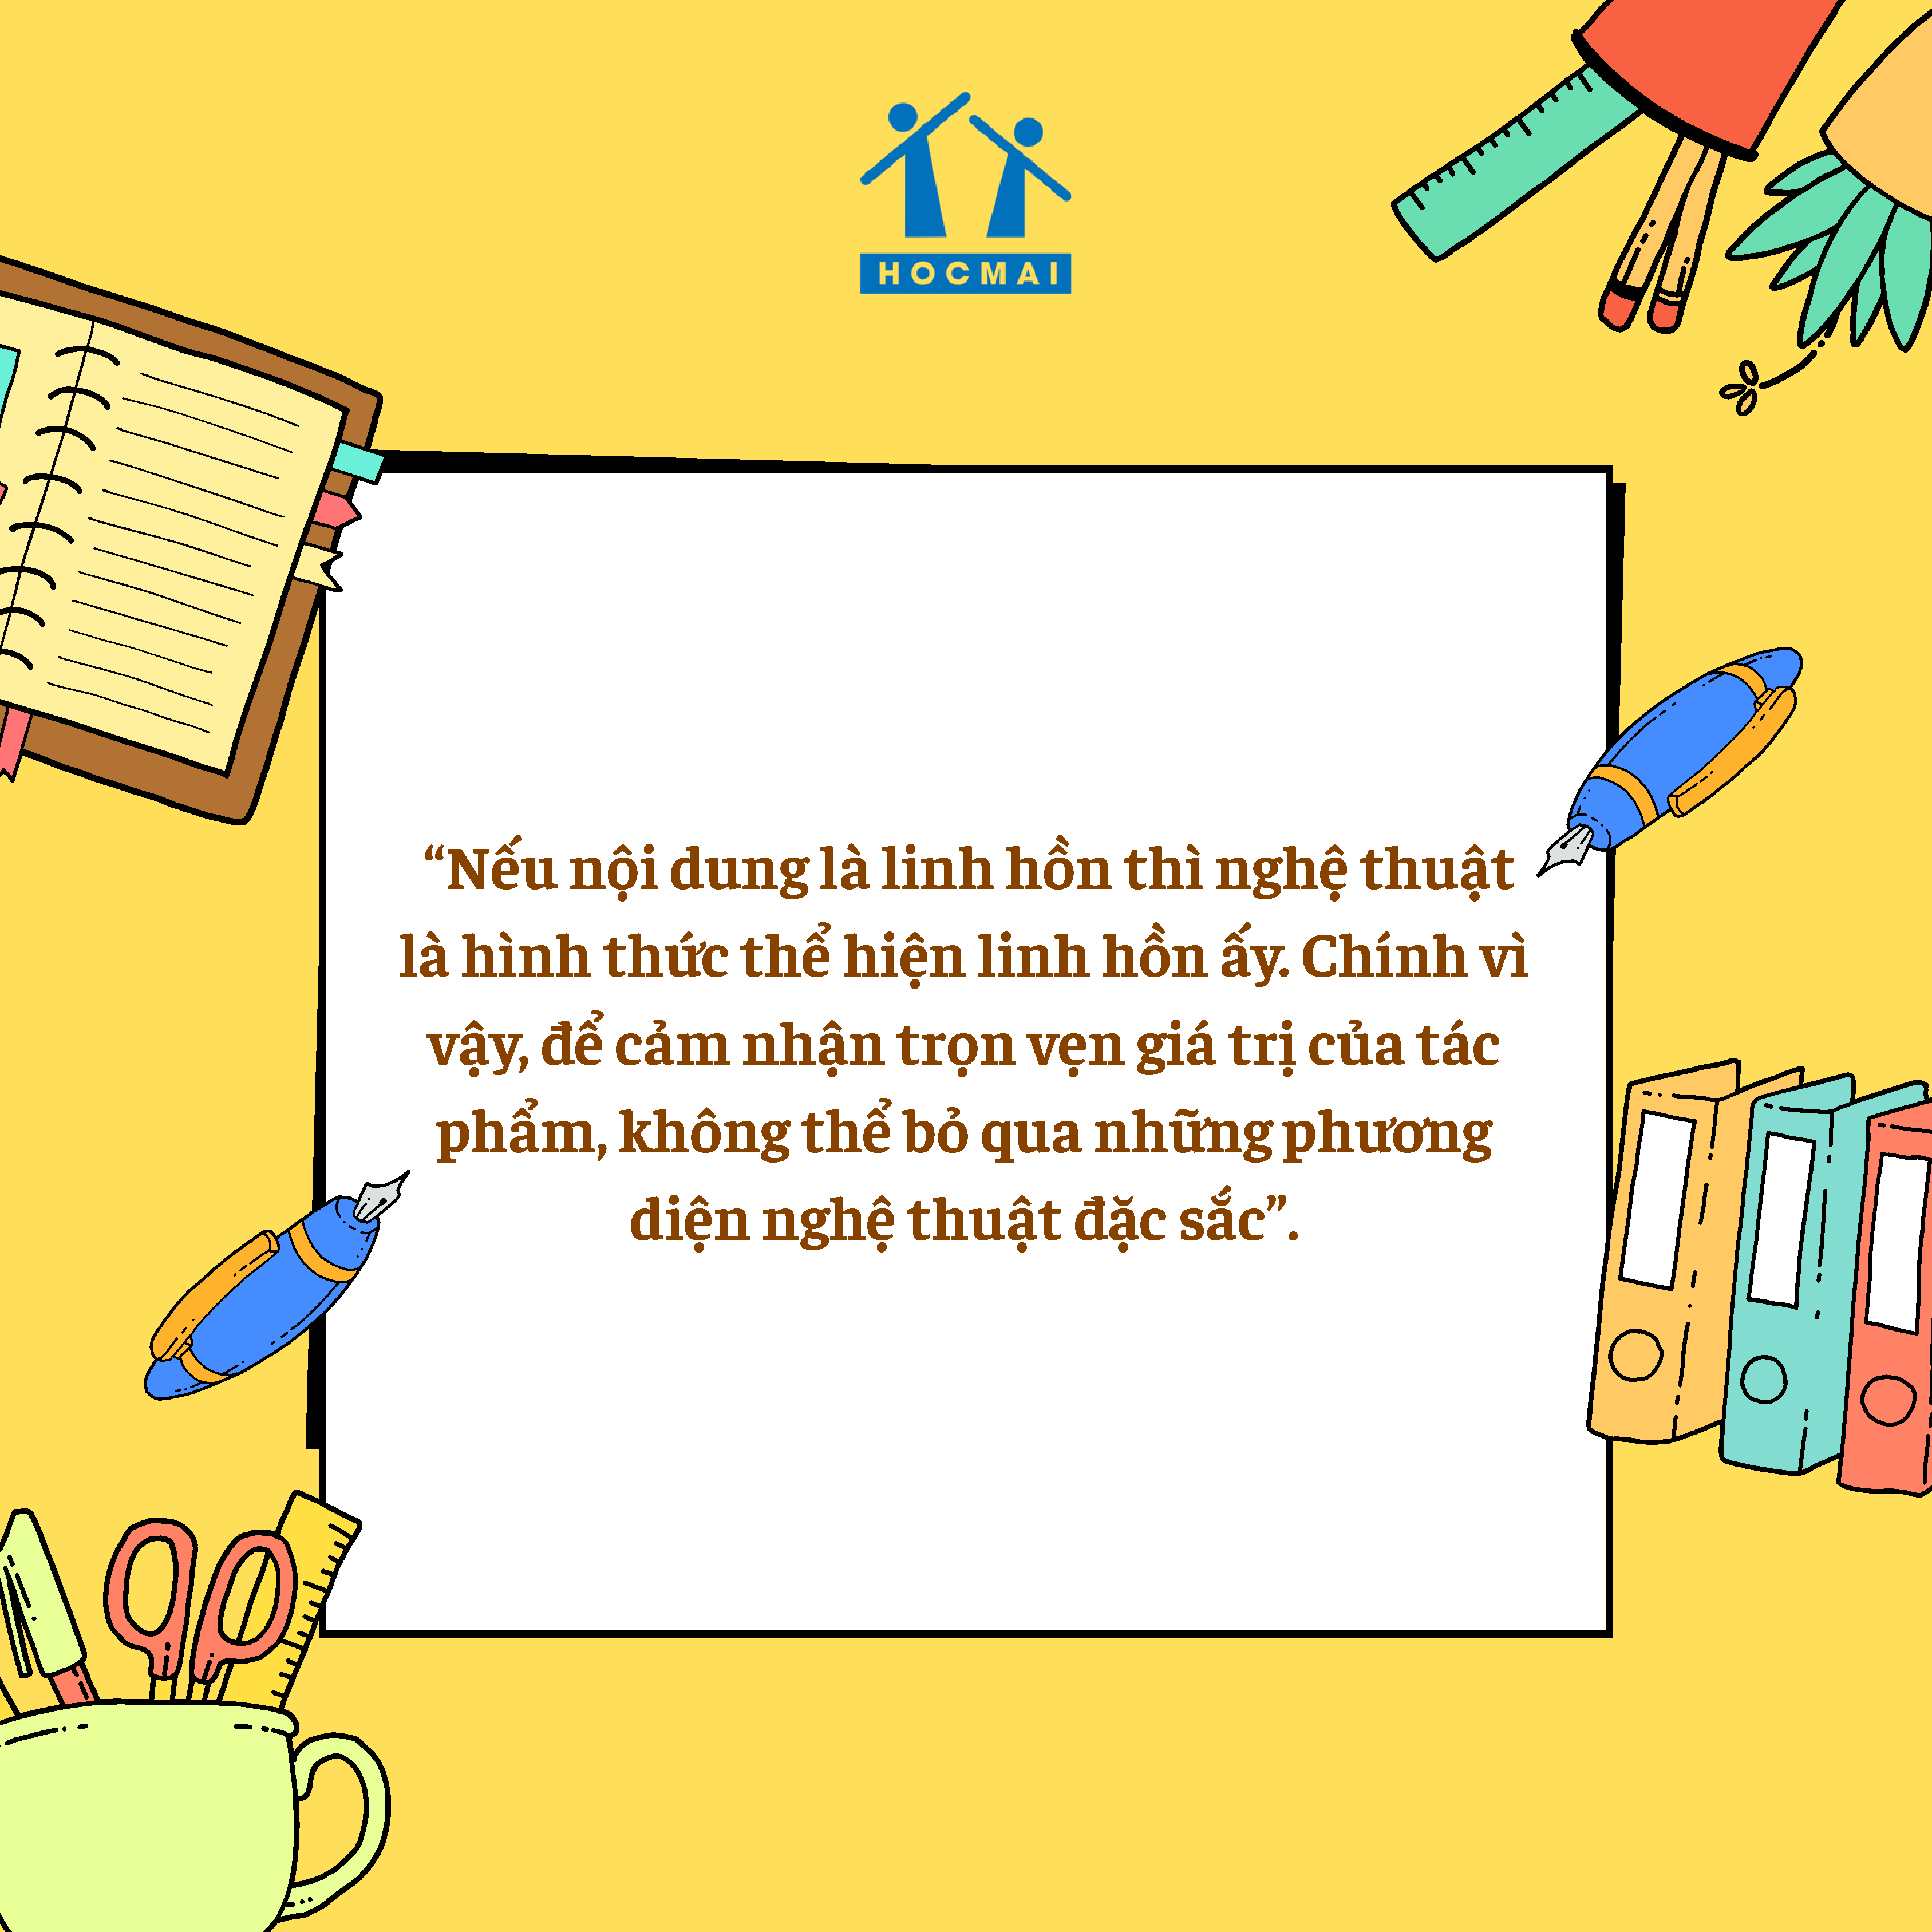 HOCMAI
“Nếu nội dung là linh hồn thì nghệ thuật
là hình thức thể hiện linh hồn ấy. Chính vì
vậy, để cảm nhận trọn vẹn giá trị của tác
phẩm, không thể bỏ qua những phương
diện nghệ thuật đặc sắc”.